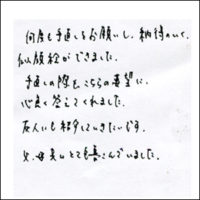 何度も手直しをお願いし、納得のいく
似顔絵ができました。
手直しの際も、こちらの要望に、
心良く答えてくれました。
友人にも紹介していきたいです。
父、母共にとても喜こんでいました。